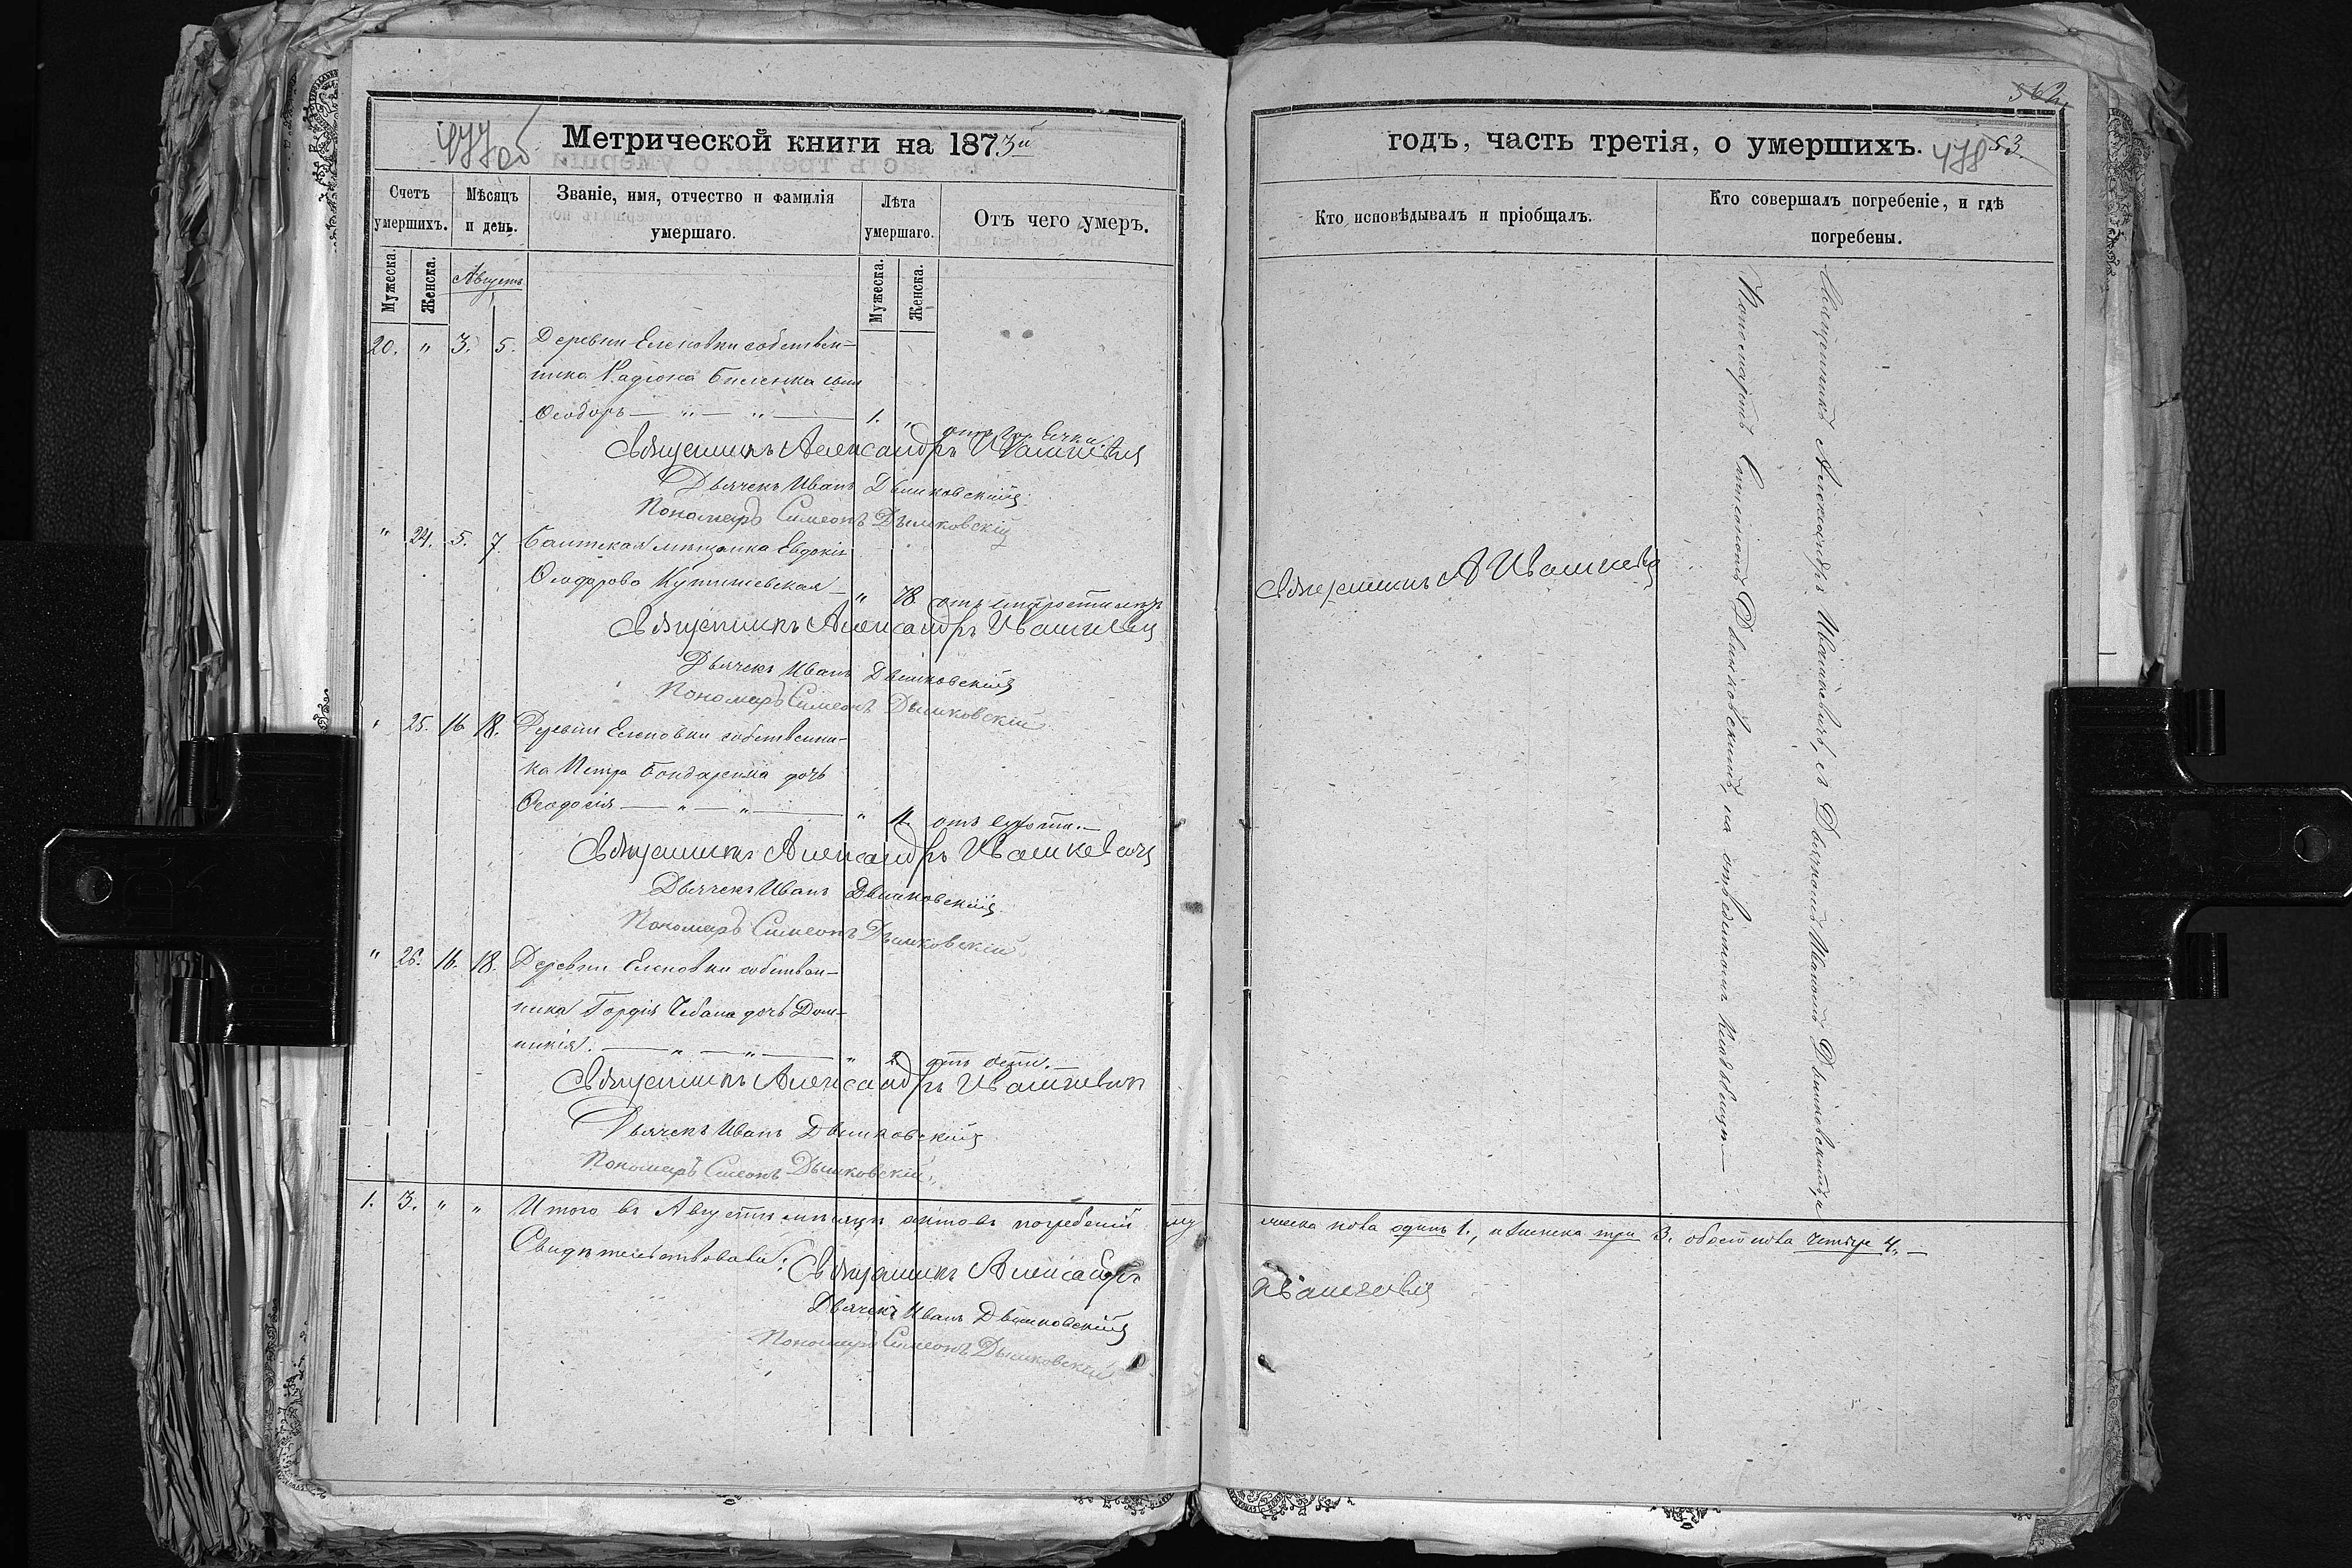 477 об
Метрической книги на 1873й
Счетъ умершихъ.
Мѣсяцъ и день.
Званіе, имя, отчество и фамилія умершаго.
Лѣта умершаго.
Отъ чего умеръ.
Мужеска.
Женска.
Августъ
Мужеска.
Женска.
20. " 3. 5. Деревни Еленовки собствен-
ника Радіона Биленка сынъ
Ѳеодоръ — " — " — 1. "
Священникъ Александръ Ивашкевич
Дьячекъ Иванъ Дышковскій
Пономарь Симеонъ Дышковскій
" 24. 5. 7. Балтская мѣщанка Евдокія
Ѳеодорова " 78. отъ старости лѣтъ
Священникъ Александръ Ивашкевич
Дьячекъ Иванъ Дышковскій
Пономарь Симеонъ Дышковскій
" 25. 16. 18. Деревни Еленовки собственни-
ка Петра Бондаренка дочь
Ѳеодосія — " — " — "
Священникъ Александръ Ивашкевич
Дьячекъ Иванъ Дышковскій
Пономарь Симеонъ Дышковскій
" 26. 16. 18. Деревни Еленовки собствен-
ника Гордія Чебана дочь Дом-
никія. — " — " — " 2
Священникъ Александръ Ивашкевич
Дьячекъ Иванъ Дышковскій
Пономарь Симеонъ Дышковскій
1. 3. " " Итого въ Августѣ мѣсяцѣ актовъ погребеній му
Свидѣтельствовали: Священникъ Александръ
Дьячекъ Иванъ Дышковскій
Пономарь Симеонъ Дышковскій
562.
годъ, часть третія, о умершихъ.
478
53.
Кто исповѣдывалъ и пріобщалъ.
Кто совершалъ погребеніе, и гдѣ погребены.
Священникъ А Ивашкевич
Священникъ Александръ Ивашкевичъ, съ Дьячкомъ Иваномъ Дышковскимъ и
Пономаремъ Симеономъ Дышковскимъ, на отведенномъ кладбищѣ.—
жеска пола одинъ 1., а женска три 3. обоего пола четыре 4. —
Ивашкевич